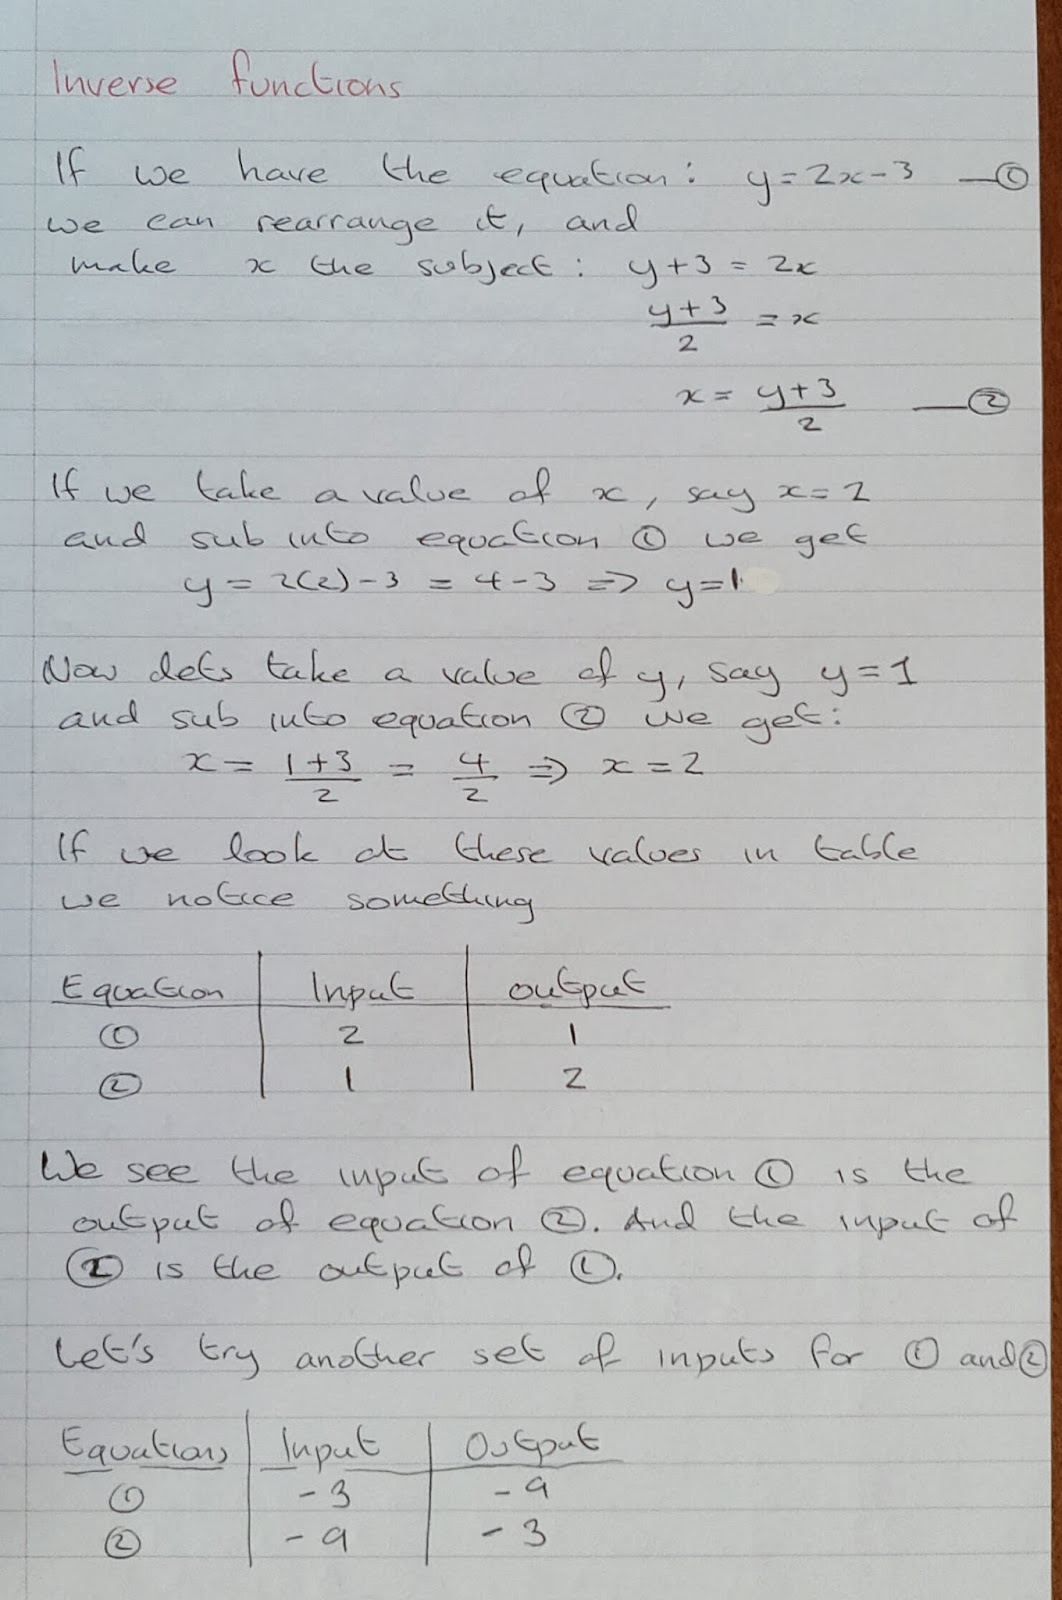 Inverse functions
If we have the equation: y = 2x - 3 —①
we can rearrange it, and
make x the subject: y + 3 = 2x
y + 3 / 2 = x
x = y + 3 / 2 —②
If we take a value of x, say x = 2
and sub into equation ① we get
y = 2(2) - 3 = 4 - 3 => y = 1
Now lets take a value of y, say y = 1
and sub into equation ② we get:
x = 1 + 3 / 2 = 4 / 2 => x = 2
If we look at these values in table
we notice something
Equation | Input | output
① | 2 | 1
② | 1 | 2
We see the input of equation ① is the
output of equation ②. And the input of
② is the output of ①.
Let's try another set of inputs for ① and ②
Equations | Input | Output
① | -3 | -9
② | -9 | -3